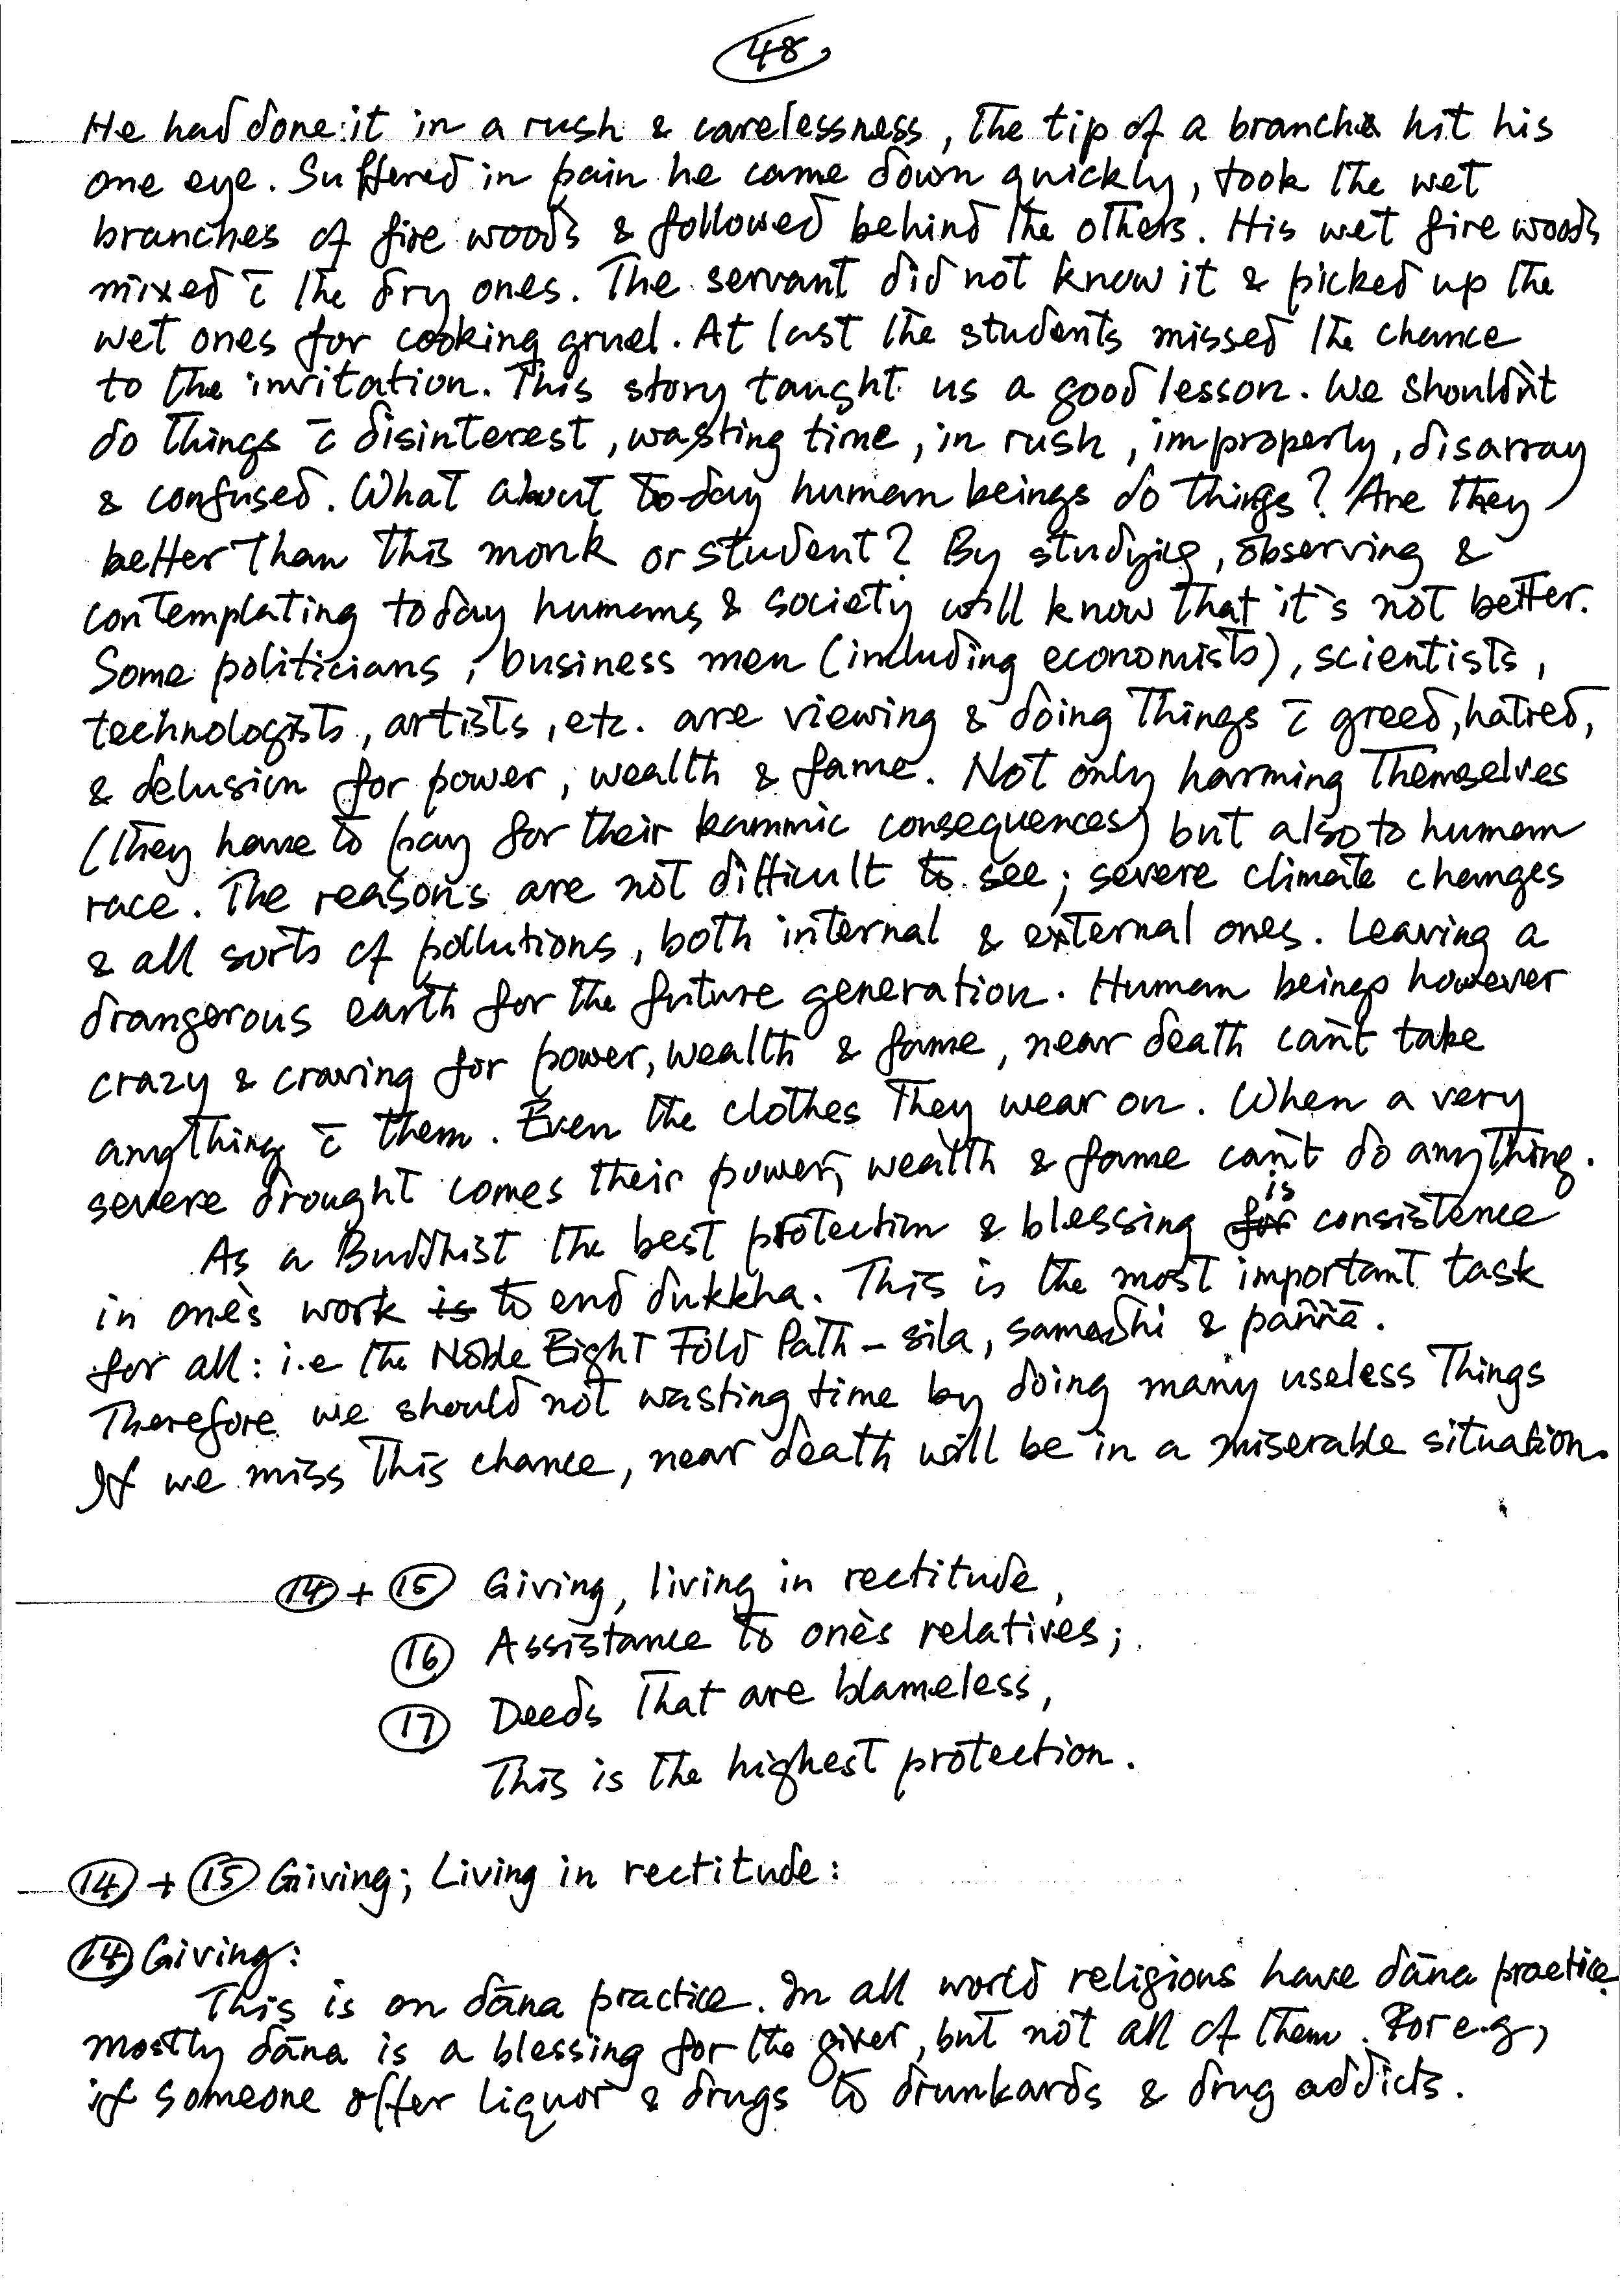 48
He had done it in a rush & carelessness, the tip of a branch hit his
one eye. Suffered in pain he came down quickly, took the wet
branches of fire woods & followed behind the others. His wet fire woods
mixed c̄ the dry ones. The servant did not know it & picked up the
wet ones for cooking gruel. At last the students missed the chance
to the invitation. This story taught us a good lesson. We shouldn't
do things c̄ disinterest, wasting time, in rush, improperly, disarray
& confused. What about to-day human beings do things? Are they
better than this monk or student? By studying, observing &
contemplating today humans & society will know that it's not better.
Some politicians, business men (including economists), scientists,
technologists, artists, etc. are viewing & doing things c̄ greed, hatred,
& delusion for power, wealth & fame. Not only harming themselves
(they have to pay for their kammic consequences) but also to human
race. The reasons are not difficult to see; severe climate changes
& all sorts of pollutions, both internal & external ones. Leaving a
drangerous earth for the future generation. Human beings however
crazy & craving for power, wealth & fame, near death can't take
anything c̄ them. Even the clothes they wear on. When a very
severe drought comes their power, wealth & fame can't do anything.
As a Buddhist the best protection & blessing is consistence
in one's work to end dukkha. This is the most important task
for all: i.e the Noble Eight Fold Path – sila, samadhi & paññā.
Therefore we should not wasting time by doing many useless things
If we miss this chance, near death will be in a miserable situation.
14 + 15 Giving, living in rectitude,
16 Assistance to one's relatives;
17 Deeds that are blameless,
This is the highest protection.
14 + 15 Giving; Living in rectitude:
14 Giving:
This is on dāna practice. In all world religions have dāna practice.
mostly dāna is a blessing for the giver, but not all of them. For e.g,
if someone offer liquor & drugs to drunkards & drug addicts.